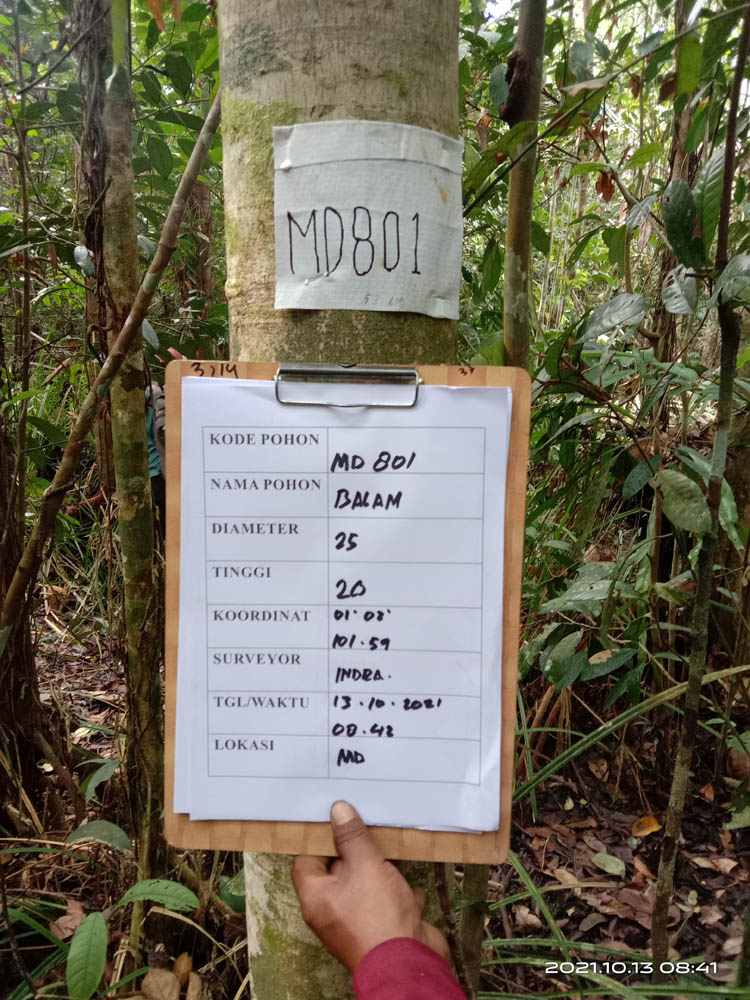 MD801
3,14
KODE POHON MD 801
NAMA POHON BALAM
DIAMETER 25
TINGGI 20
KOORDINAT 01·08'
101·59
SURVEYOR INDRA.
TGL/WAKTU 13·10·2021
08.42
LOKASI MD
2021.10.13 08:41